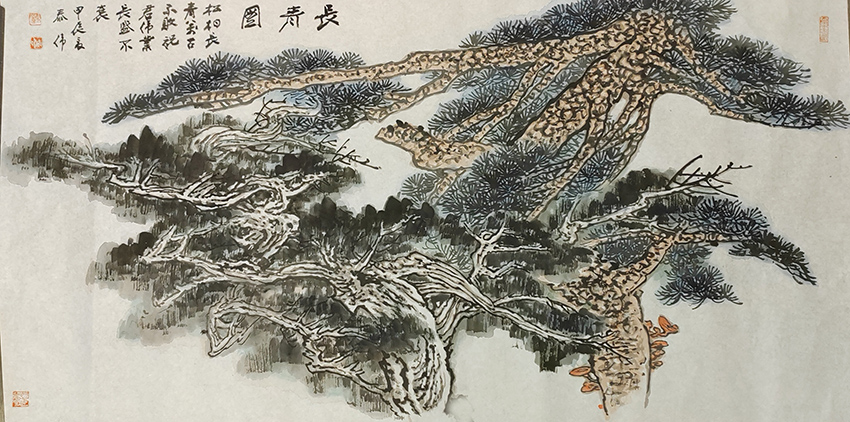 長青圖
松柏長
青萬古
不敗祝
君偉業
長盛不
衰
甲辰夏
泰偉